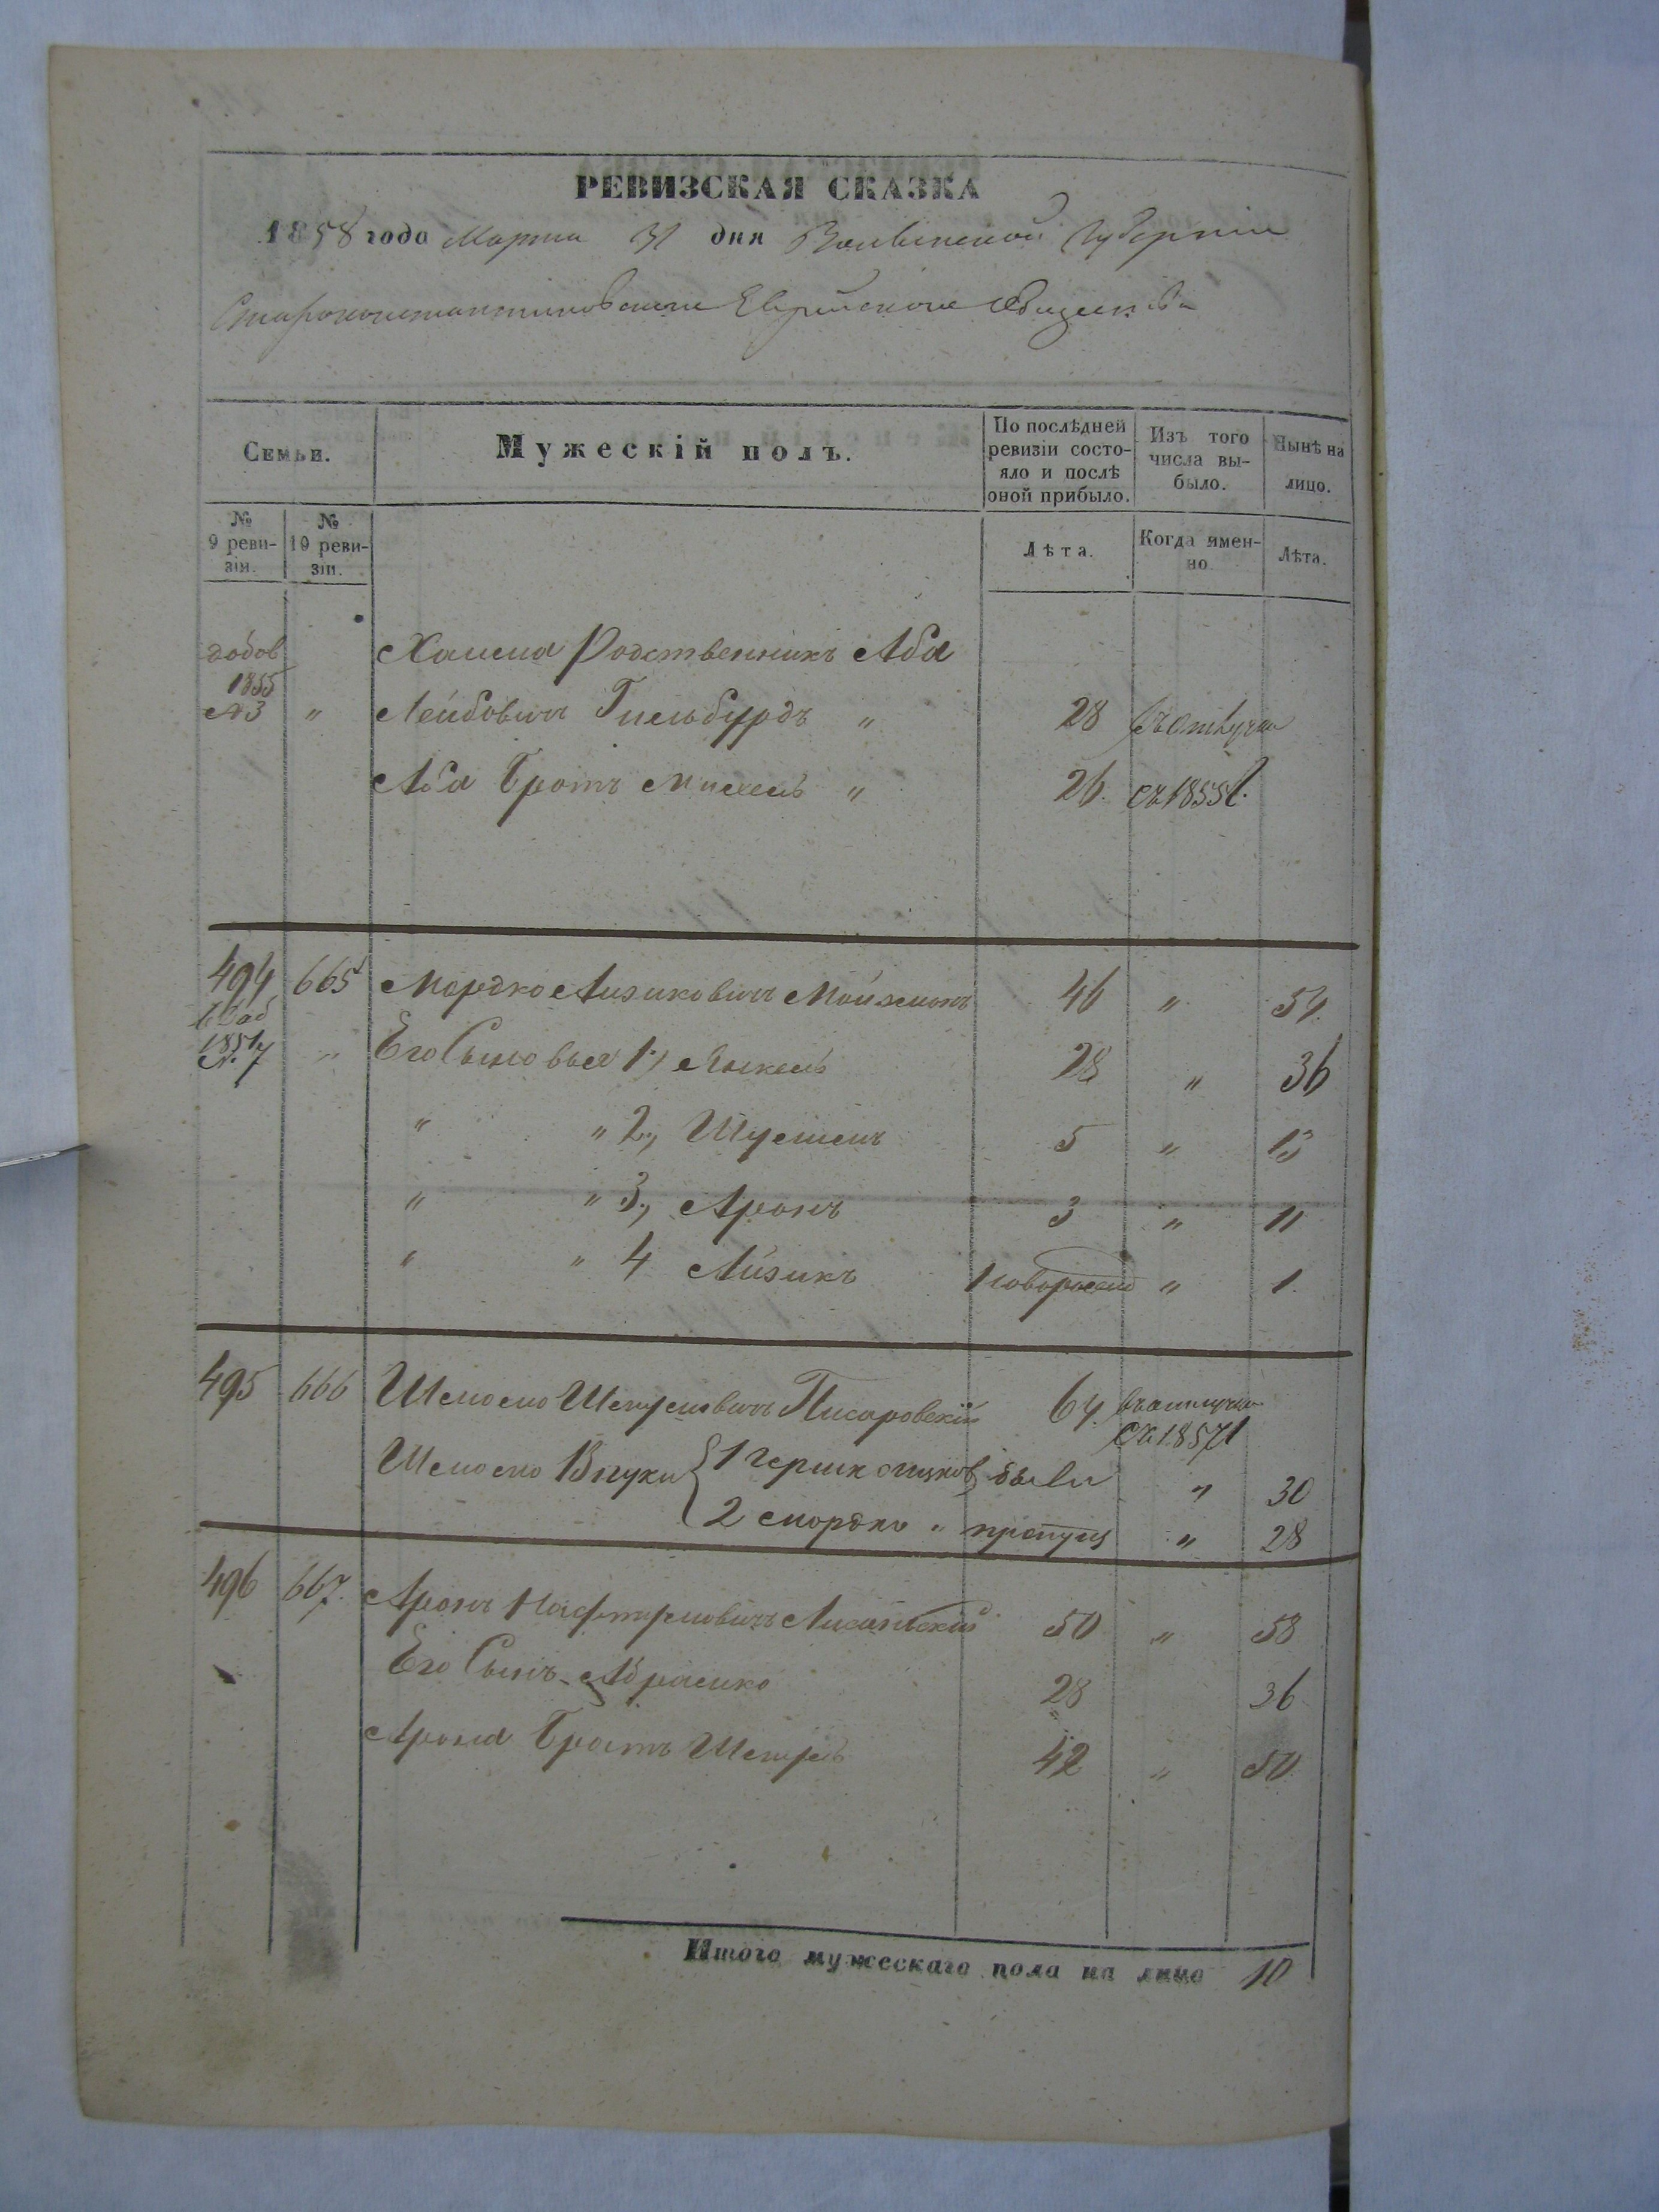 РЕВИЗСКАЯ СКАЗКА
1858 года Марта 31 дня Волынской Губерніи
Староконстантиновскаго Еврейскаго Общества
Семьи.
Мужескій полъ.
По послѣдней ревизіи состо-
яло и послѣ
оной прибыло.
Изъ того
числа вы-
было.
Нынѣ на
лицо.
№
9 реви-
зіи.
№
10 реви-
зіи.
Лѣта.
Когда имен-
но
Лѣта.
добов
1855
№3 "
Хаима Родственникъ Аба
Лейбовичъ Гильбурдъ " 28
Аба Братъ Михель " 26 съ 1855 г.
494 665 Мордко Айзиковичъ Мойзманъ 46 " 54
1851
№ 7 " Его Сыновья 1) 28 " 36
" " 2, 5 " 13
" " 3, Аронъ 3 " 11
" " 4 Айзикъ новорожд " 1.
495 666 Писаровскій 64 въ отлучке
съ 1857 г
Внуки 1 Гершк были " 30
2 Мордко " пропущ " 28
496 667. Аронъ 50 " 58
Его Сынъ Абрамко 28 36
Арона Братъ 42 " 50
Итого мужескаго пола на лицо 10